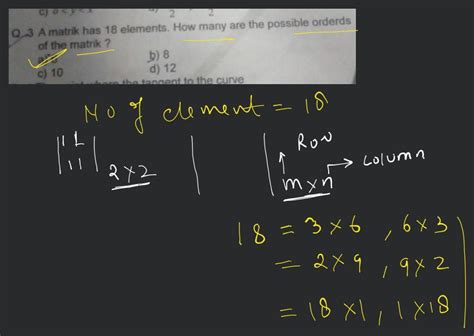 c) 0 < y < x a) 2 2
Q.3 A matrik has 18 elements. How many are the possible orderds
of the matrik ?
b) 8
c) 10 d) 12
the tangent to the curve
No of element = 18
1 1
1 1
2 x 2
Row
column
m x n
18 = 3 x 6 , 6 x 3
= 2 x 9 , 9 x 2
= 18 x 1 , 1 x 18